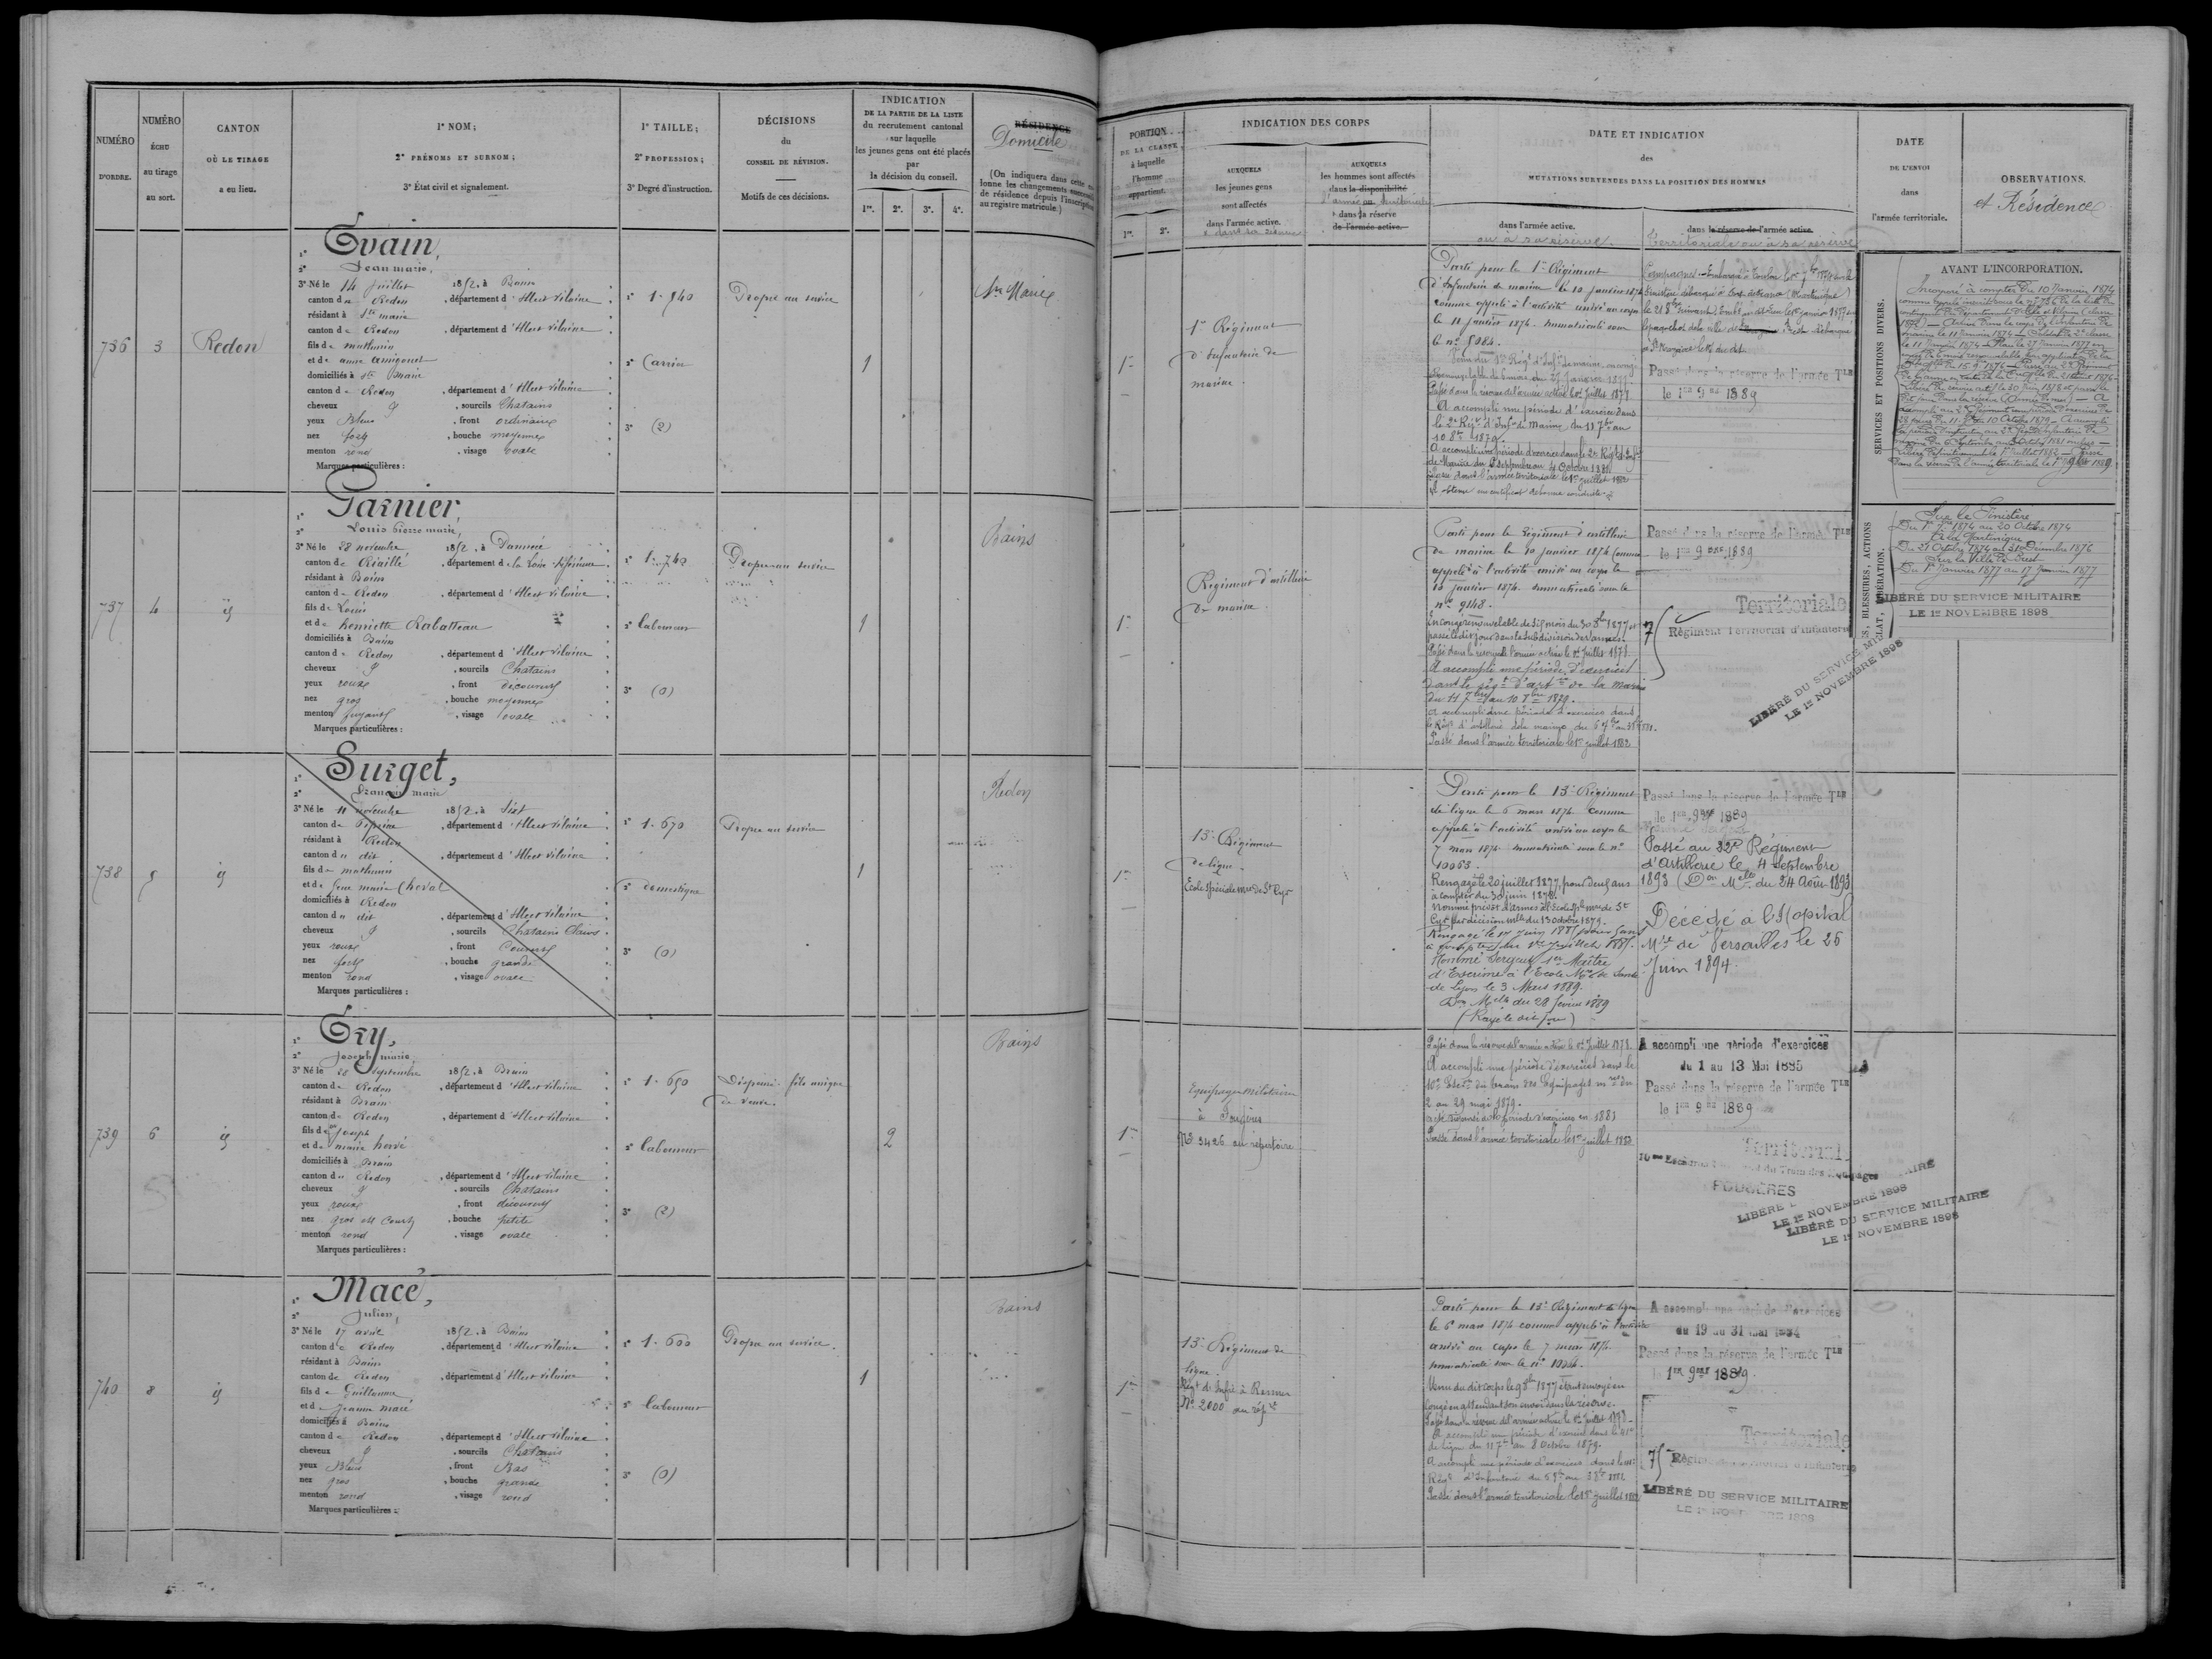 NUMÉRO
D'ORDRE.
NUMÉRO
ÉCHU
au tirage
au sort.
CANTON
OÙ LE TIRAGE
a eu lieu.
1º NOM;
2º PRÉNOMS ET SURNOM;
3º État civil et signalement.
1º TAILLE;
2º PROFESSION;
3º Degré d'instruction.
DÉCISIONS
du
CONSEIL DE RÉVISION.
Motifs de ces décisions.
INDICATION
DE LA PARTIE DE LA LISTE
du recrutement cantonal
sur laquelle
les jeunes gens ont été placés
par
la décision du conseil.
1re. 2e. 3e. 4e.
RÉSIDENCE
Domicile
(On indiquera dans cette
lonne les changements
de résidence depuis l'inscription
au registre matricule.)
736 3 Redon
1º Evain,
2º Jean marie,
3º Né le 14 Juillet 1852, à Bains
canton de Redon, département d'Ille et Vilaine
résidant à Ste marie
canton de Redon, département d'Ille et Vilaine
fils de mathurin
et de anne
domiciliés à Ste marie
canton de Redon, département d'Ille et Vilaine
cheveux, sourcils Chatains
yeux Bleus, front ordinaire
nez fort, bouche moyenne
menton rond, visage Ovale
Marques particulières :
3º (2)
Propre au service
1
Ste Marie
737 4 id
1º Garnier,
2º Louis Pierre marie,
3º Né le 28 novembre 1852, à
canton de Riaillé, département de la Loire inférieure
résidant à Bains
canton de Redon, département d'Ille et Vilaine
fils de Louis
et de henriette Rabatteau
domiciliés à Bains
canton de Redon, département d'Ille et Vilaine
cheveux, sourcils Chatains
yeux roux, front découvert
nez gros, bouche moyenne
menton fuyant, visage ovale
Marques particulières :
1º 1.740
2º laboureur
3º (0)
Propre au service
1
Bains
738 5 id
1º Surget,
2º François marie
3º Né le 11 novembre 1852, à Sixt
canton de Pipriac, département d'Ille et Vilaine
résidant à Redon
canton du dit, département d'Ille et Vilaine
fils de mathurin
et de marie Cheval
domiciliés à Redon
canton du dit, département d'Ille et Vilaine
cheveux, sourcils Chatains Clairs
yeux roux, front Couvert
nez fort, bouche grande
menton rond, visage ovale
Marques particulières :
1º 1.670
2º domestique
3º (0)
Propre au service
1
Redon
739 6 id
1º Ery,
2º Joseph marie
3º Né le 28 septembre 1852, à Brain
canton de Redon, département d'Ille et Vilaine
résidant à Brain
canton de Redon, département d'Ille et Vilaine
fils de Joseph
et de marie hervé
domiciliés à Brain
canton de Redon, département d'Ille et Vilaine
cheveux, sourcils Chatains
yeux roux, front découvert
nez gros et Court, bouche petite
menton rond, visage ovale
Marques particulières :
1º 1.650
2º laboureur
3º (2)
Dispensé fils unique
de veuve.
2
Bains
740 8 id
1º Macé,
2º Julien,
3º Né le 17 avril 1852, à Bains
canton de Redon, département d'Ille et Vilaine
résidant à Bains
canton de Redon, département d'Ille et Vilaine
fils de Guillaume
et de Jeanne macé
domiciliés à Bains
canton de Redon, département d'Ille et Vilaine
cheveux, sourcils Chatains
yeux Bleus, front Bas
nez gros, bouche grande
menton rond, visage rond
Marques particulières :
1º 1.600
2º laboureur
3º (0)
Propre au service.
1
Bains
PORTION
DE LA CLASSE
à laquelle
l'homme
appartient.
1re. 2e.
INDICATION DES CORPS
AUXQUELS
les jeunes gens
sont affectés
dans l'armée active.
AUXQUELS
les hommes sont affectés
dans la disponibilité
dans la réserve
de l'armée active.
DATE ET INDICATION
des
MUTATIONS SURVENUES DANS LA POSITION DES HOMMES
dans l'armée active.
ou à sa réserve.
dans la réserve de l'armée active.
Territoriale ou à sa réserve
DATE
DE L'ENVOI
dans
l'armée territoriale.
OBSERVATIONS.
et Résidence
1re
1er Régiment
d'Infanterie de
marine.
Parti pour le 1er Régiment
d'Infanterie de marine le 10 janvier 1874
comme appelé à l'activité arrivé au corps
le 11 janvier 1874. Immatriculé sous
le nº 5084.
Passé dans la réserve de l'armée active le 1er Juillet 1878
A accompli une période d'exercices dans
le 2e Régt d'Infie de Marine du 11 7bre au
10 8bre 1879.
A accompli une période d'exercices dans le 2e Régt d'Infie
de Marine du 6 septembre au 4 Octobre 1881
Passé dans l'armée territoriale le 1er juillet 1882
A obtenu un certificat de bonne conduite
Passé dans la réserve de l'armée Tle
le 1er 9bre 1889
SERVICES ET POSITIONS DIVERS.
AVANT L'INCORPORATION.
Incorporé à compter du 10 Janvier 1874
Sur le Finistère
Du 1er 7bre 1874 au 20 Octobre 1874
A la Martinique
Du 21 Octobre 1874 au 31 Décembre 1876
Sur la Ville de Brest
Du 1er Janvier 1877 au 17 Janvier 1877
LIBÉRÉ DU SERVICE MILITAIRE
LE 1er NOVEMBRE 1898
1re
Régiment d'artillerie
de marine
Parti pour le Régiment d'artillerie
de marine le 10 janvier 1874 Comme
appelé à l'activité arrivé au corps le
10 janvier 1874. Immatriculé sous le
nº 9148.
En congé renouvelable de six mois du 30 8bre 1877 et
Passé dans la réserve de l'armée active le 1er Juillet 1878
A accompli une période d'exercices
dans le régt d'artie de la marine
du 11 7bre au 10 8bre 1879.
A accompli une période d'exercices dans
le Régt d'artillerie de la marine
Passé dans l'armée territoriale le 1er juillet 1882
Passé dans la réserve de l'armée Tle
le 1er 9bre 1889
Territoriale
Régiment Territorial d'Infanterie
LIBÉRÉ DU SERVICE MILITAIRE
LE 1er NOVEMBRE 1898
1re
13e Régiment
de ligne
Ecole Spéciale mre de St Cyr
Parti pour le 13e Régiment
de ligne le 6 mars 1874 comme
appelé à l'activité arrivé au corps le
7 mars 1874. Immatriculé sous le nº
10063.
Rengagé le 20 juillet 1877, pour deux ans
à compter du 30 juin 1878.
Nommé prévôt d'armes à l'Ecole Sple mre de St
Cyr par décision mlle du 13 octobre 1879.
Rengagé le 17 Juin 1881 pour 5 ans
Nommé Sergent 1er Maître
d'Escrime à l'Ecole Mre de Santé
de Lyon le 3 Mars 1889.
Don Mlle du 28 février 1889
(Rayé le dit jour)
Passé dans la réserve de l'armée Tle
le 1er 9bre 1889
Passé au 32e Régiment
d'Artillerie le 4 Septembre
1893 (Don Mlle du 24 Août 1893
Décédé à l'Hopital
Mre de Versailles le 26
Juin 1894.
1re
Equipages militaires
à Fougères
Nº 3426 au répertoire
Passé dans la réserve de l'armée active le 1er Juillet 1878
A accompli une période d'exercices dans le
10e Escon du train des Equipages mres du
2 au 29 mai 1879.
Passé dans l'armée territoriale le 1er juillet 1882
A accompli une période d'exercices
du 1 au 13 Mai 1885
Passé dans la réserve de l'armée Tle
le 1er 9bre 1889
Territoriale
du Train des Equipages
FOUGÈRES
LE 1er NOVEMBRE 1898
LIBÉRÉ DU SERVICE MILITAIRE
LE 1er NOVEMBRE 1898
1re
13e Régiment de
ligne.
Régt de Infie à Rennes
Nº 2000 au répre
Parti pour le 13e Régiment de ligne
le 6 mars 1874 comme appelé à l'activité
arrivé au corps le 7 mars 1874.
Immatriculé sous le nº
congé en attendant son envoi dans la réserve
Passé dans la réserve de l'armée active le 1er Juillet 1878
A accompli une période d'exercices dans le 41e
de ligne du 11 7bre au 8 Octobre 1879.
A accompli une période d'exercices dans le
Régt d'Infanterie
Passé dans l'armée territoriale le 1er juillet 1882
A accompli une période d'exercices
du 19 au 31 mai 1884
Passé dans la réserve de l'armée Tle
1er 9bre 1889
Territoriale
75e Régiment Territorial d'Infanterie
LIBÉRÉ DU SERVICE MILITAIRE
LE 1er NOVEMBRE 1898